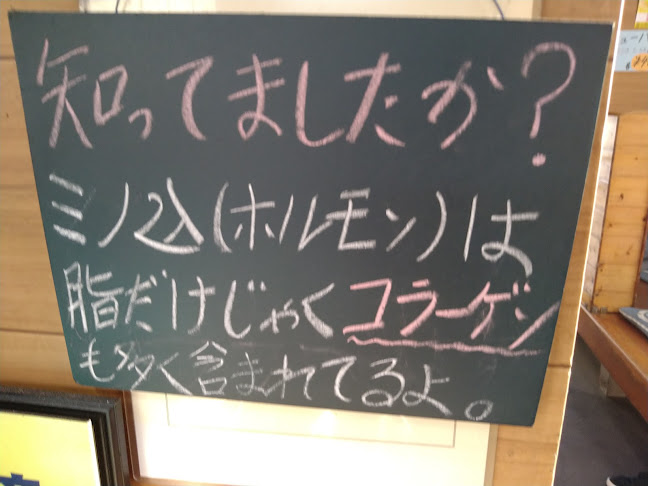 知ってましたか?
ミノ込(ホルモン)は
脂だけじゃくコラーゲン
も多く含まれてるよ。